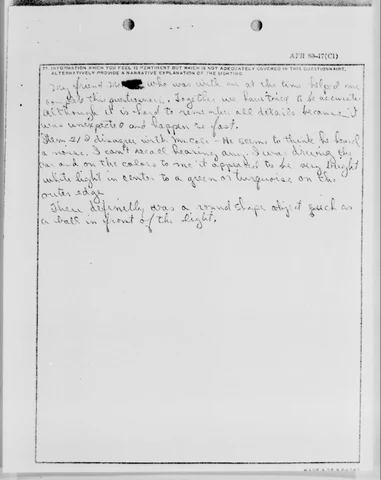 AFR 80-17(C1)
27. INFORMATION WHICH YOU FEEL IS PERTINENT BUT WHICH IS NOT ADEQUATELY COVERED IN THIS QUESTIONNAIRE,
ALTERNATIVELY PROVIDE A NARRATIVE EXPLANATION OF THE SIGHTING
My friend who was with me at the time helped me
complete this questionaire. Together we have tried to be accurate
although it is hard to remember all details because it
was unexpected and happen so fast.
Item 21 I disagree with He seems to think he heard
a noise. I can't recall hearing any. I was driving the
car and on the colors to me it appeared to be very bright
white light in center to a green or turquoise on the
outer edge
There definetly was a round shape object such as
a ball in front of the light.